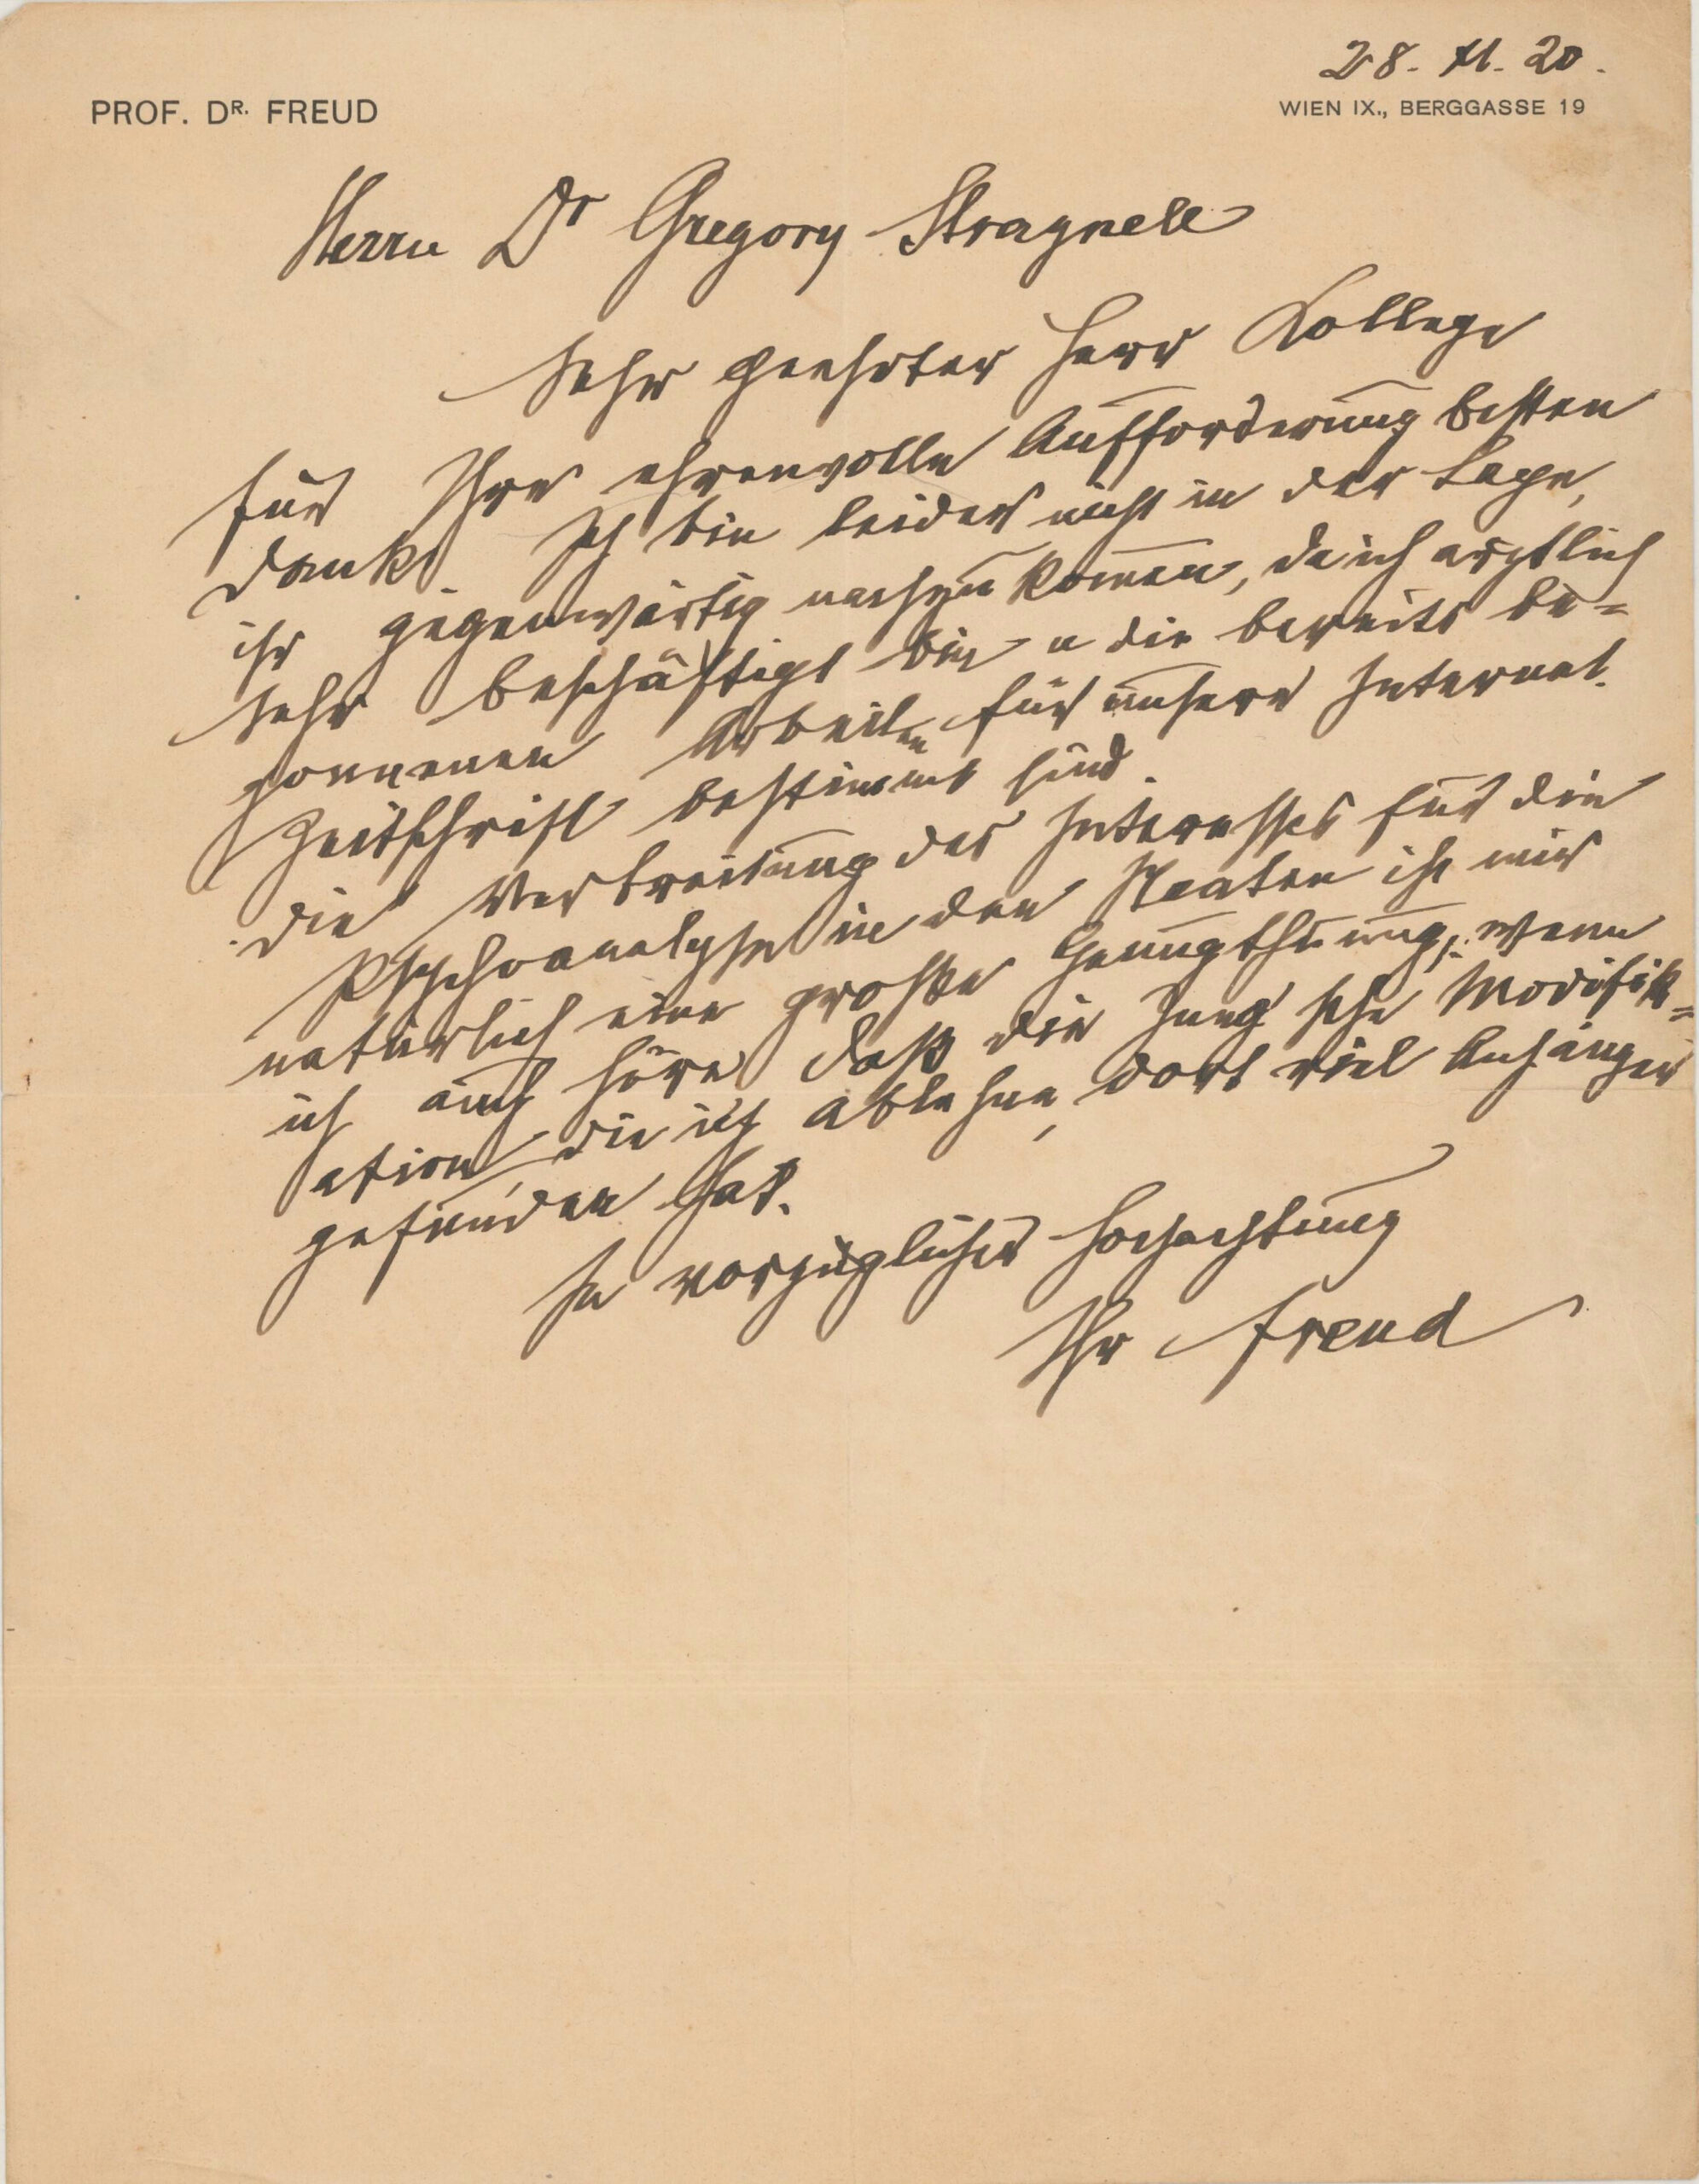 28. XI. 20.
PROF. DR. FREUD
WIEN IX., BERGGASSE 19
Herrn Dr Gregory Stragnell
Sehr geehrter Herr Kollege
Für Ihre ehrenvolle Aufforderung besten
Dank. Ich bin leider nicht in der Lage,
ihr gegenwärtig nachzukom̅en, da ich ärztlich
sehr beschäftigt bin u die bereits be=
gonnenen Arbeiten für unsere Internat.
Zeitschrift bestimmt sind.
Die Verbreitung des Interesses für die
Psychoanalyse in den Staaten ist mir
natürlich eine große Genugthuung, wenn
ich auch höre daß die Jung'sche Modifik=
ation, die ich ablehne, dort viel Anhänger
gefunden hat.
In vorzüglicher Hochachtung
Ihr Freud